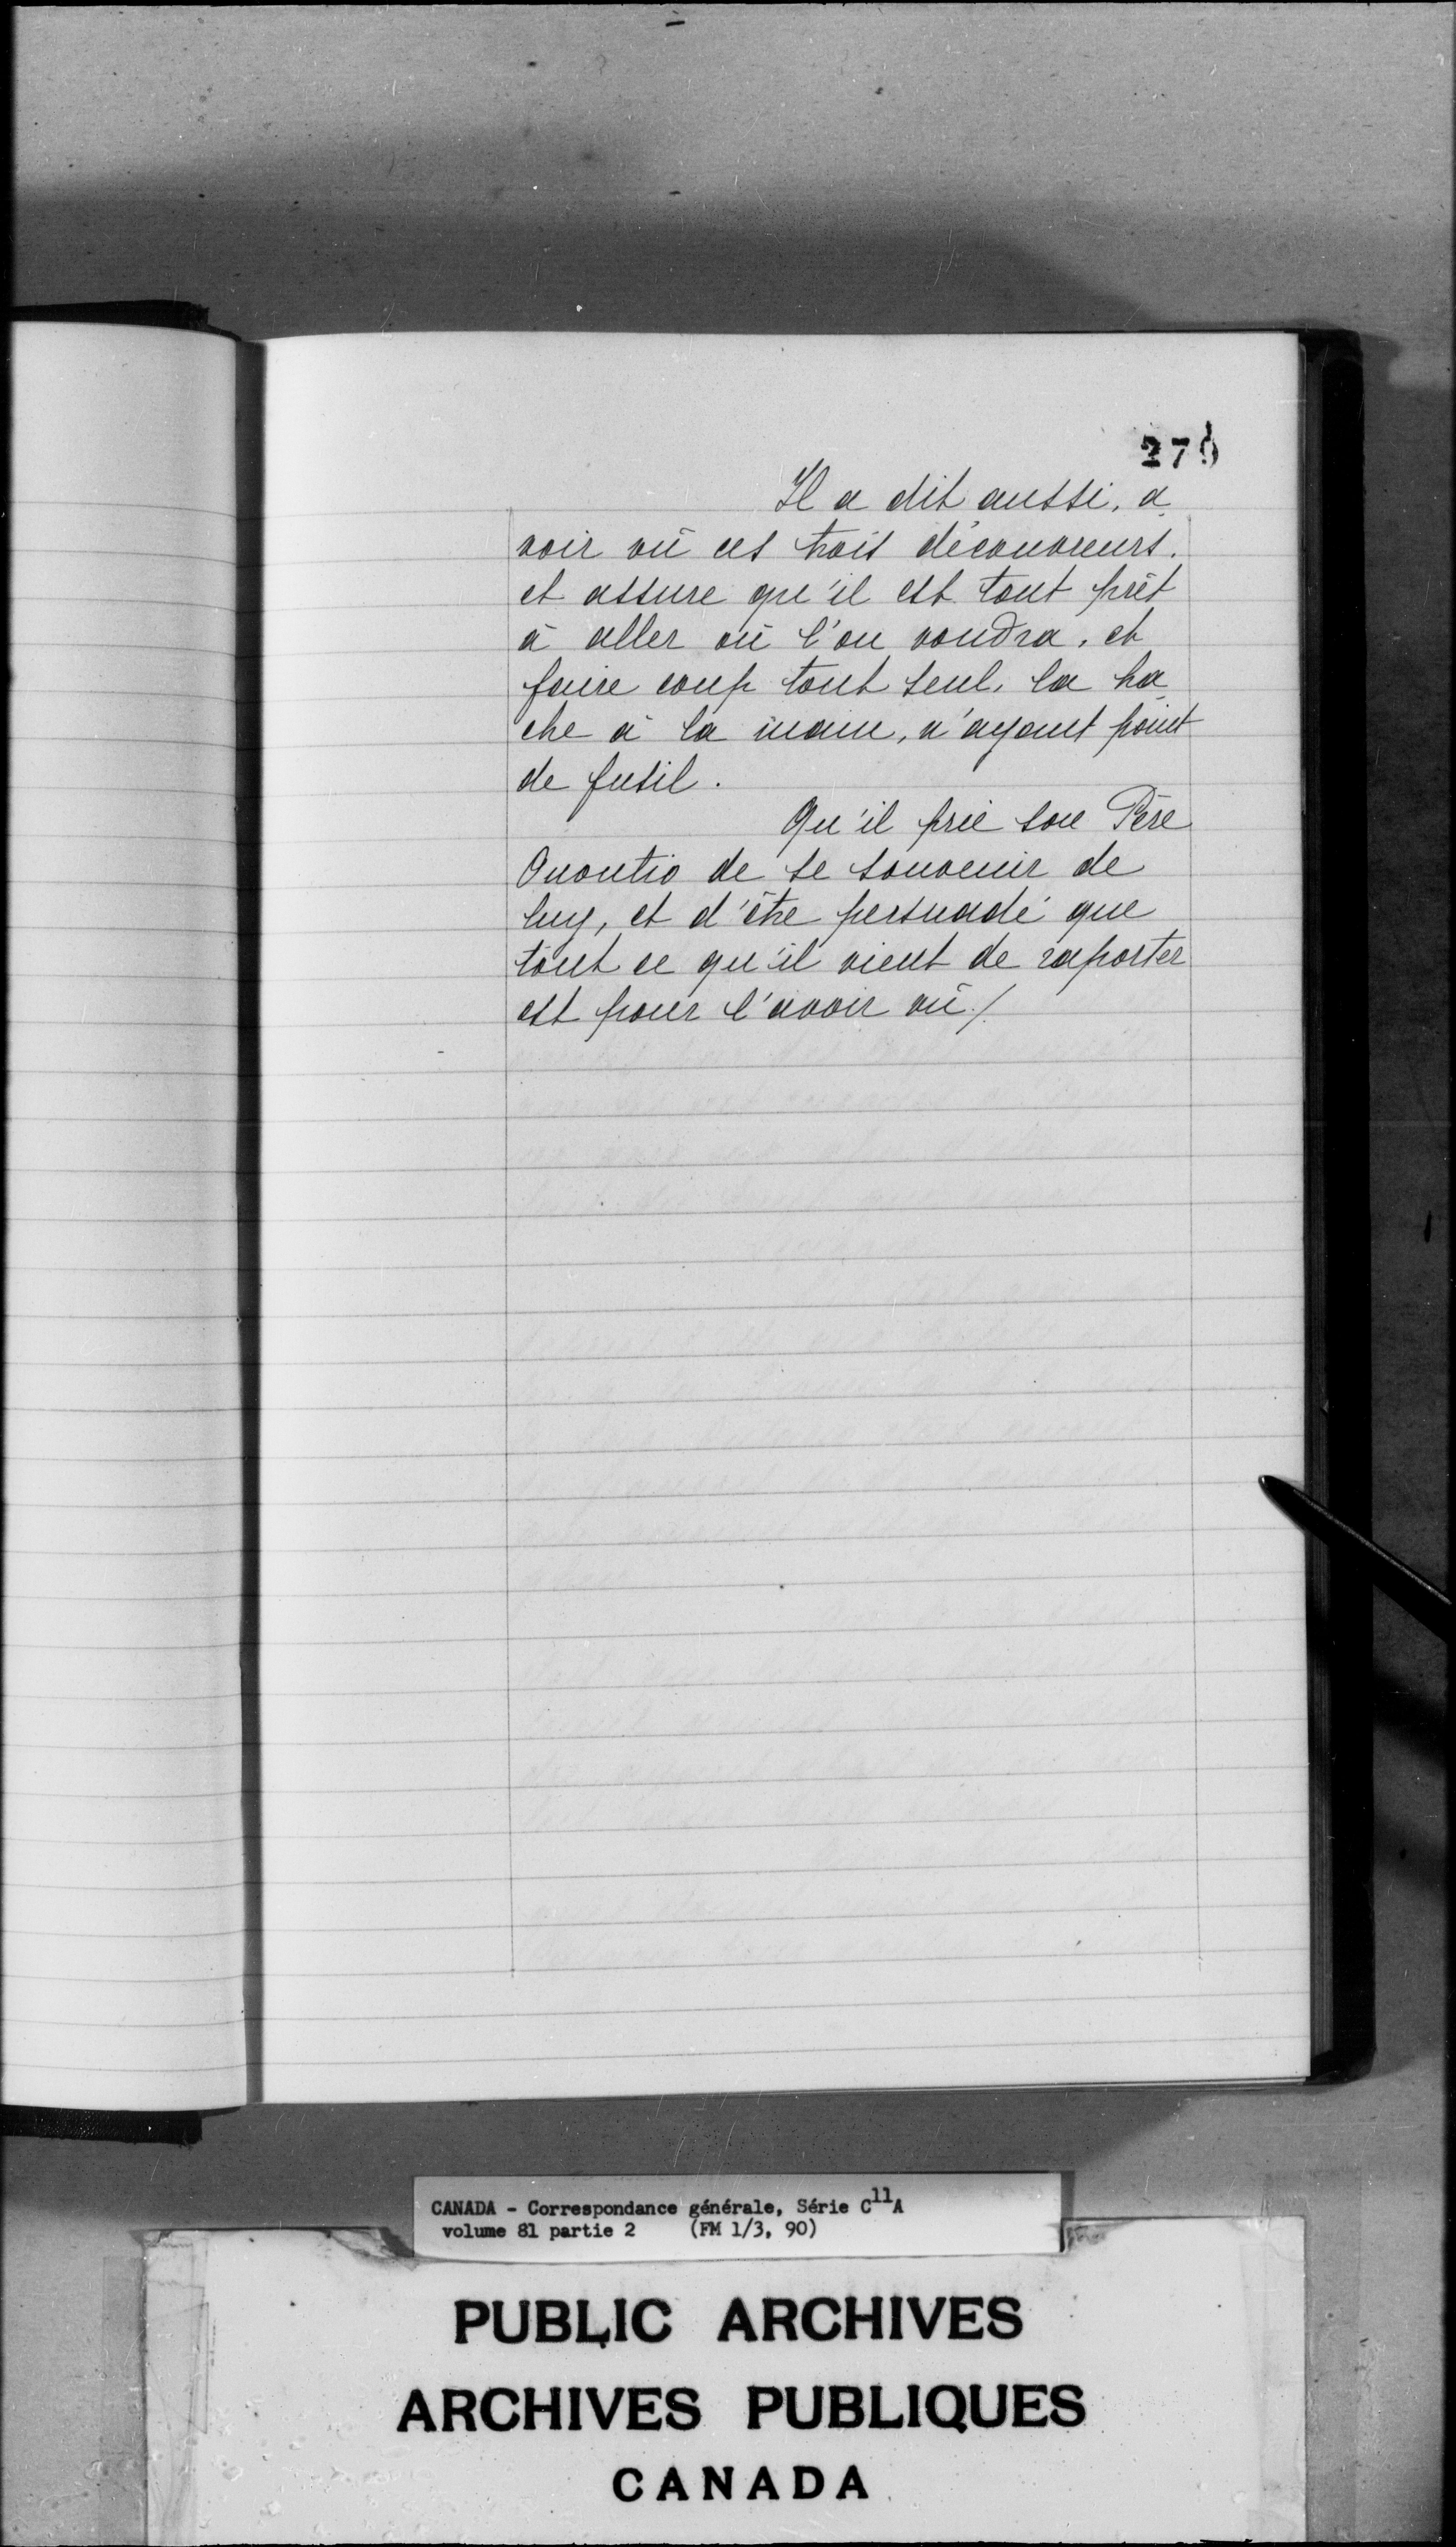 Il a dit aussi, a
voir vû ces trois découvreurs.
et assure qu'il est tout prêt
à aller où l'on voudra, et
faire coup tout seul, la ha
che à la main, n'ayant point
de fusil.
Qu'il prie son Père
Onontio de se souvenir de
luy, et d'être persuadé que
tout ce qu'il vient de raporter
est pour l'avoir vû./.
CANADA - Correspondance générale, Série C11A
volume 81 partie 2 (FM 1/3, 90)
PUBLIC ARCHIVES
ARCHIVES PUBLIQUES
CANADA